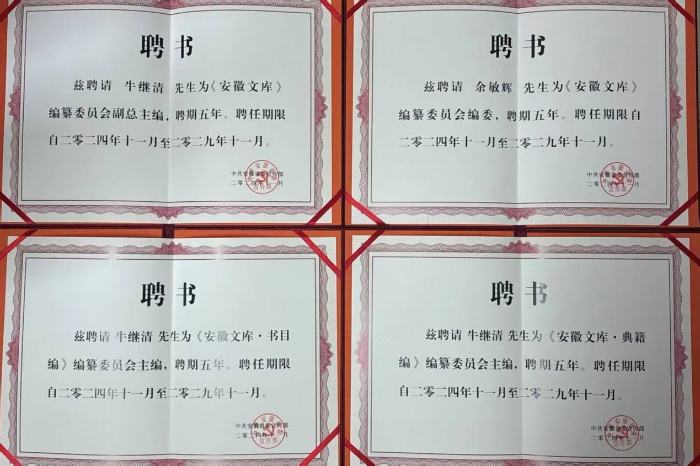 聘书
兹聘请 牛继清 先生为《安徽文库》
编纂委员会副总主编，聘期五年。聘任期限
自二零二四年十一月至二零二九年十一月。
中共安徽省委宣传部
二零二四年十一月
聘书
兹聘请 余敏辉 先生为《安徽文库》
编纂委员会编委，聘期五年。聘任期限自
二零二四年十一月至二零二九年十一月。
中共安徽省委宣传部
二零二四年十一月
聘书
兹聘请 牛继清 先生为《安徽文库·书目
编》编纂委员会主编，聘期五年。聘任期限
自二零二四年十一月至二零二九年十一月。
中共安徽省委宣传部
二零二四年十一月
聘书
兹聘请 牛继清 先生为《安徽文库·典籍
编》编纂委员会主编，聘期五年。聘任期限
自二零二四年十一月至二零二九年十一月。
中共安徽省委宣传部
二零二四年十一月